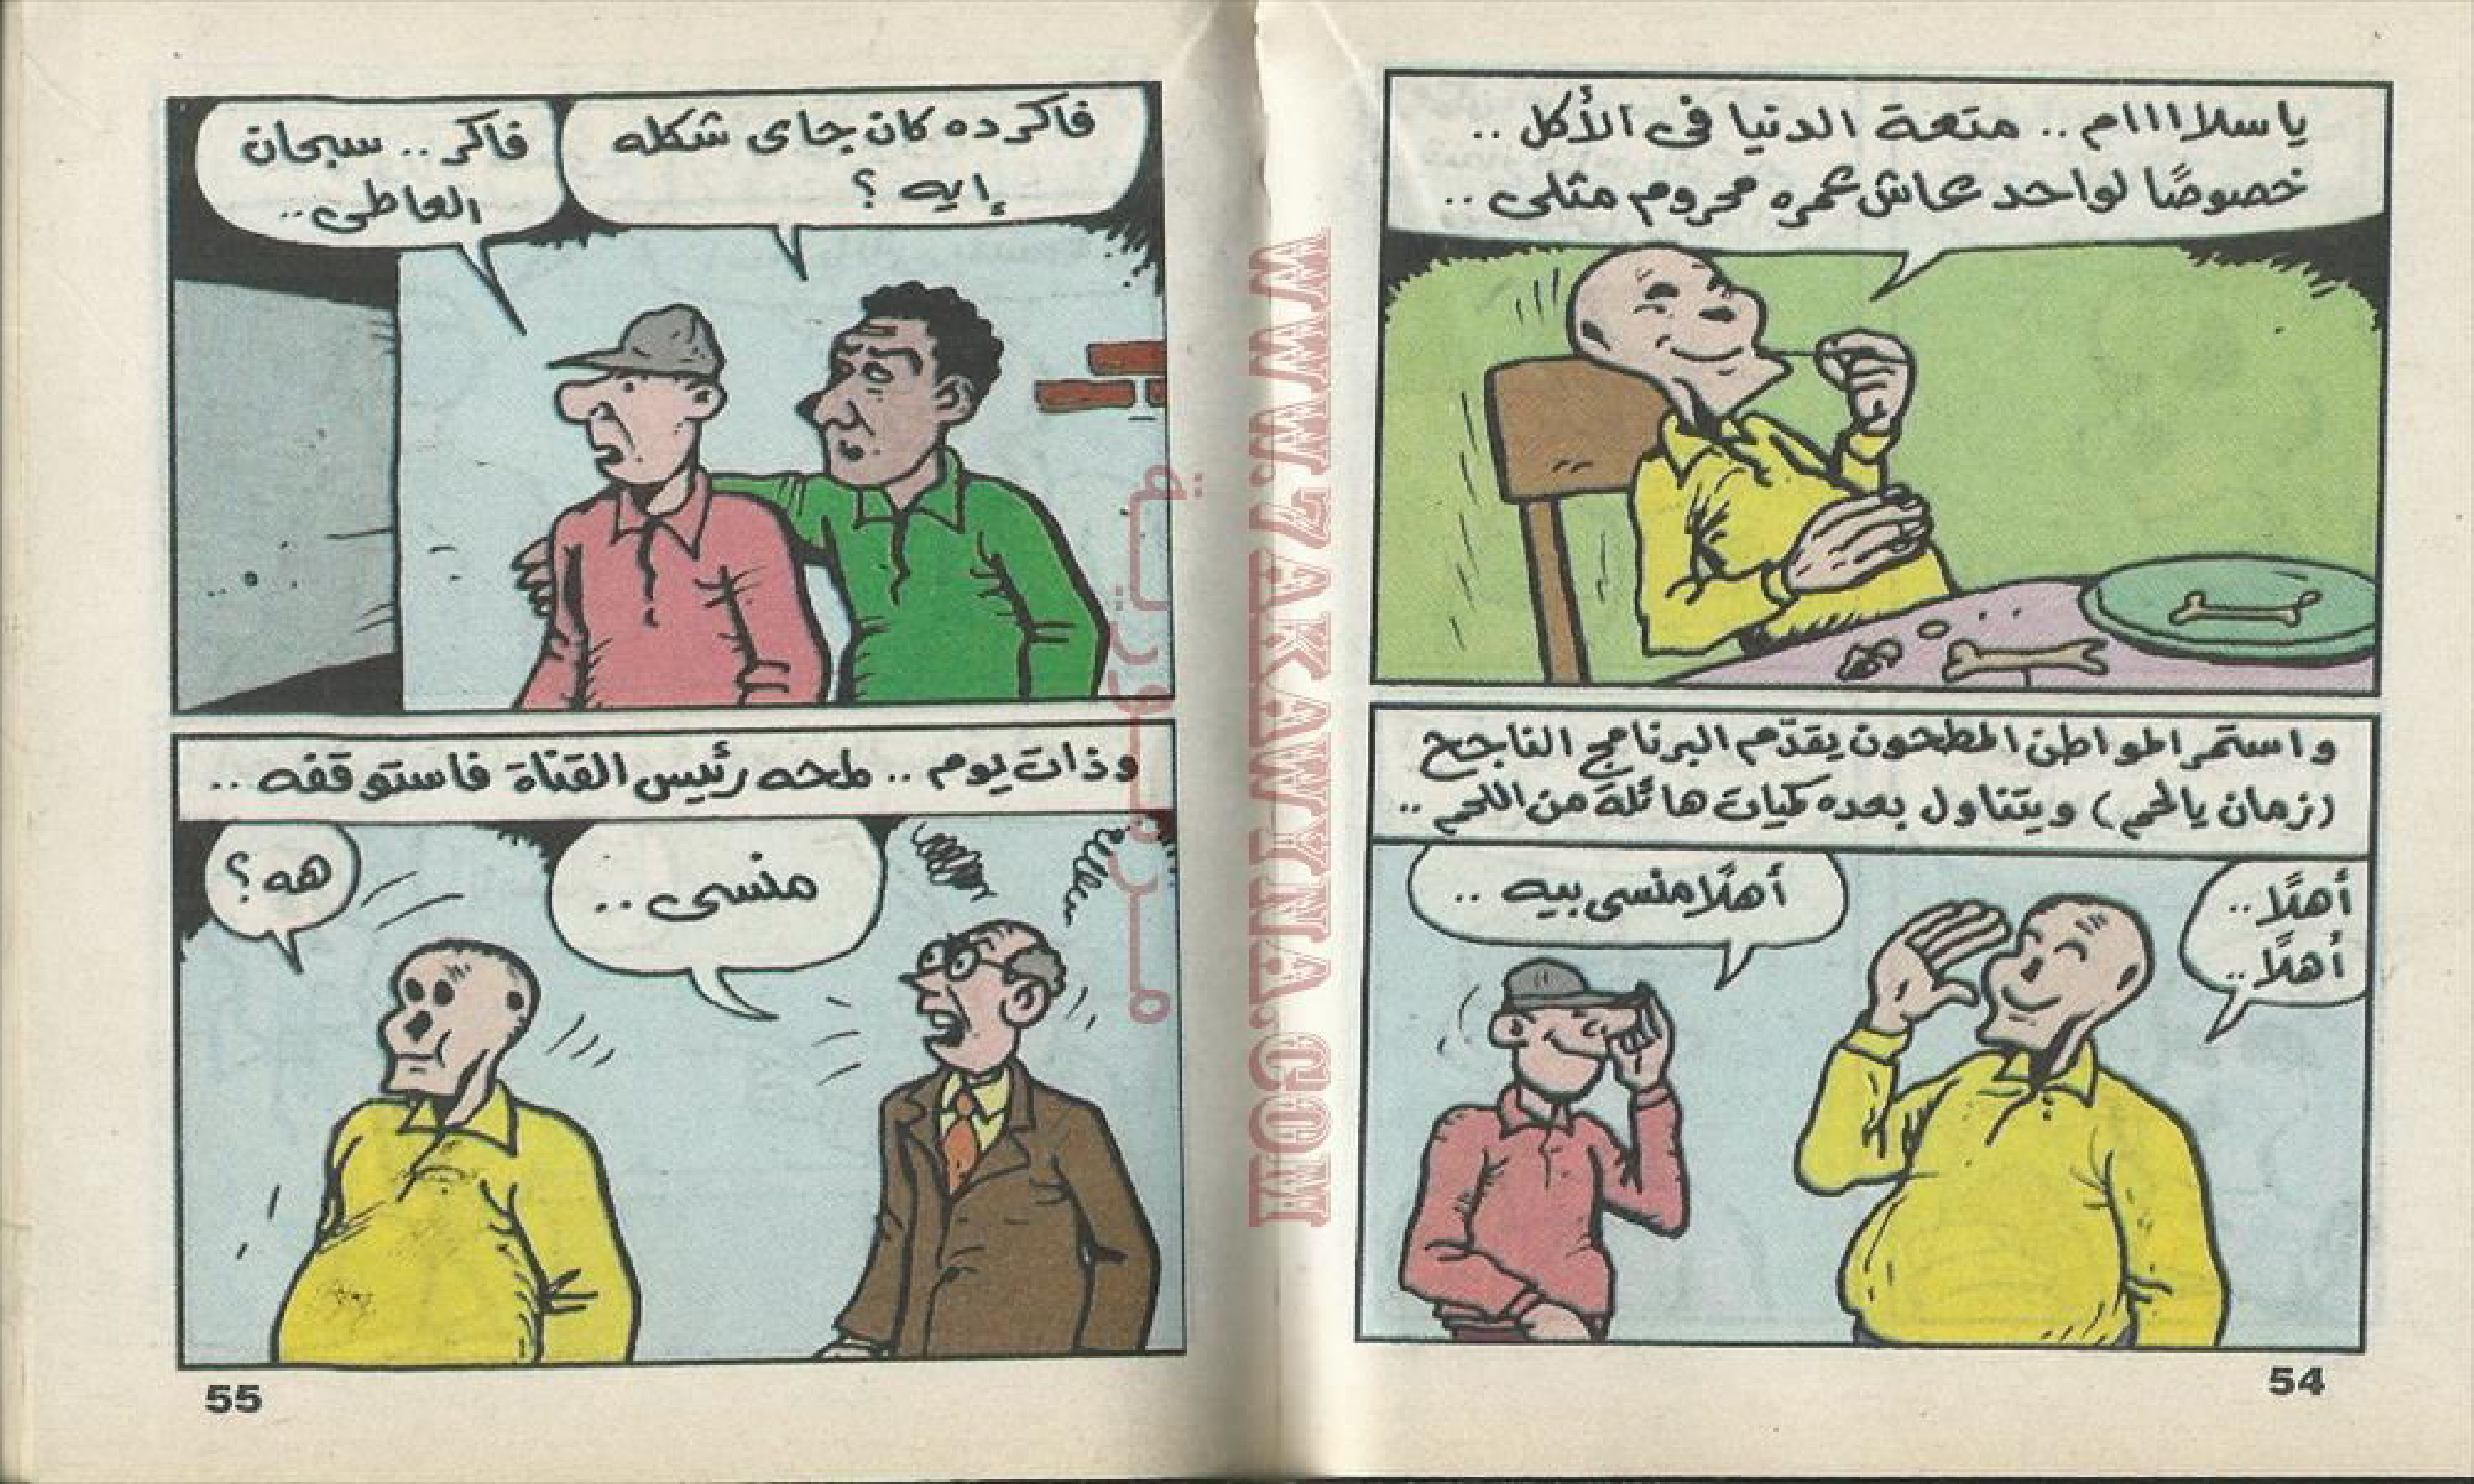 ياسلاااام .. متعة الدنيا فى الأكل ..
خصوصًا لواحد عاش عمره محروم مثلى ..
واستمر المواطن المطحون يقدّم البرنامج الناجح
(زمان يالحم) ويتناول بعده كميات هائلة من اللحم ..
أهلًا ..
أهلًا ..
أهلًا منسى بيه ..
54
فاكر ده كان جاى شكله
إيه ؟
فاكر .. سبحان
العاطى ..
وذات يوم .. لمحه رئيس القناة فاستوقفه ..
منسى ..
هه ؟
55
WWW.7AKAWYNA.COM